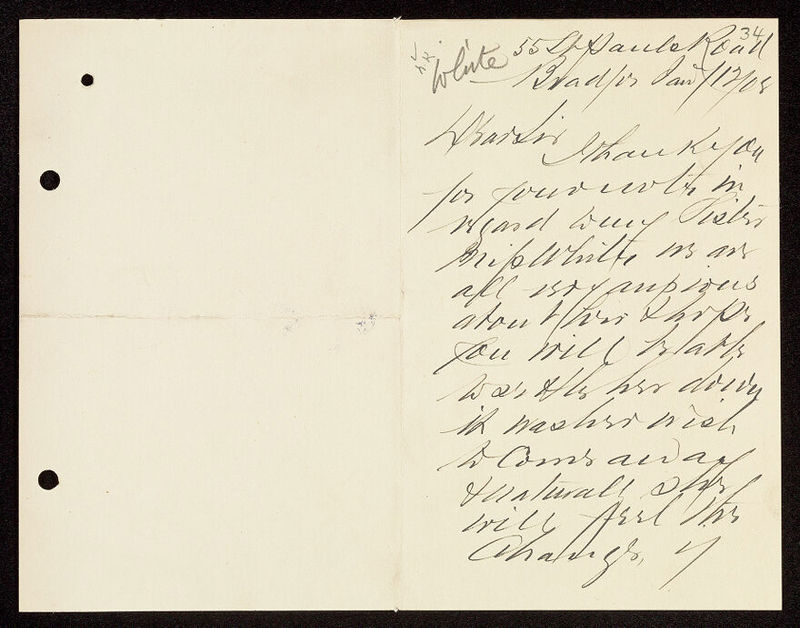 34
White
55 St Pauls Road
Bradfor Jany/12/08
Dear Sir
I thank you
for your note in
regard to my Sister
Miss White, we are
all very anxious
about her & hope
you will be able
to settle her down
it was her wish
to Come away
& naturall she
will feel the
Change, y